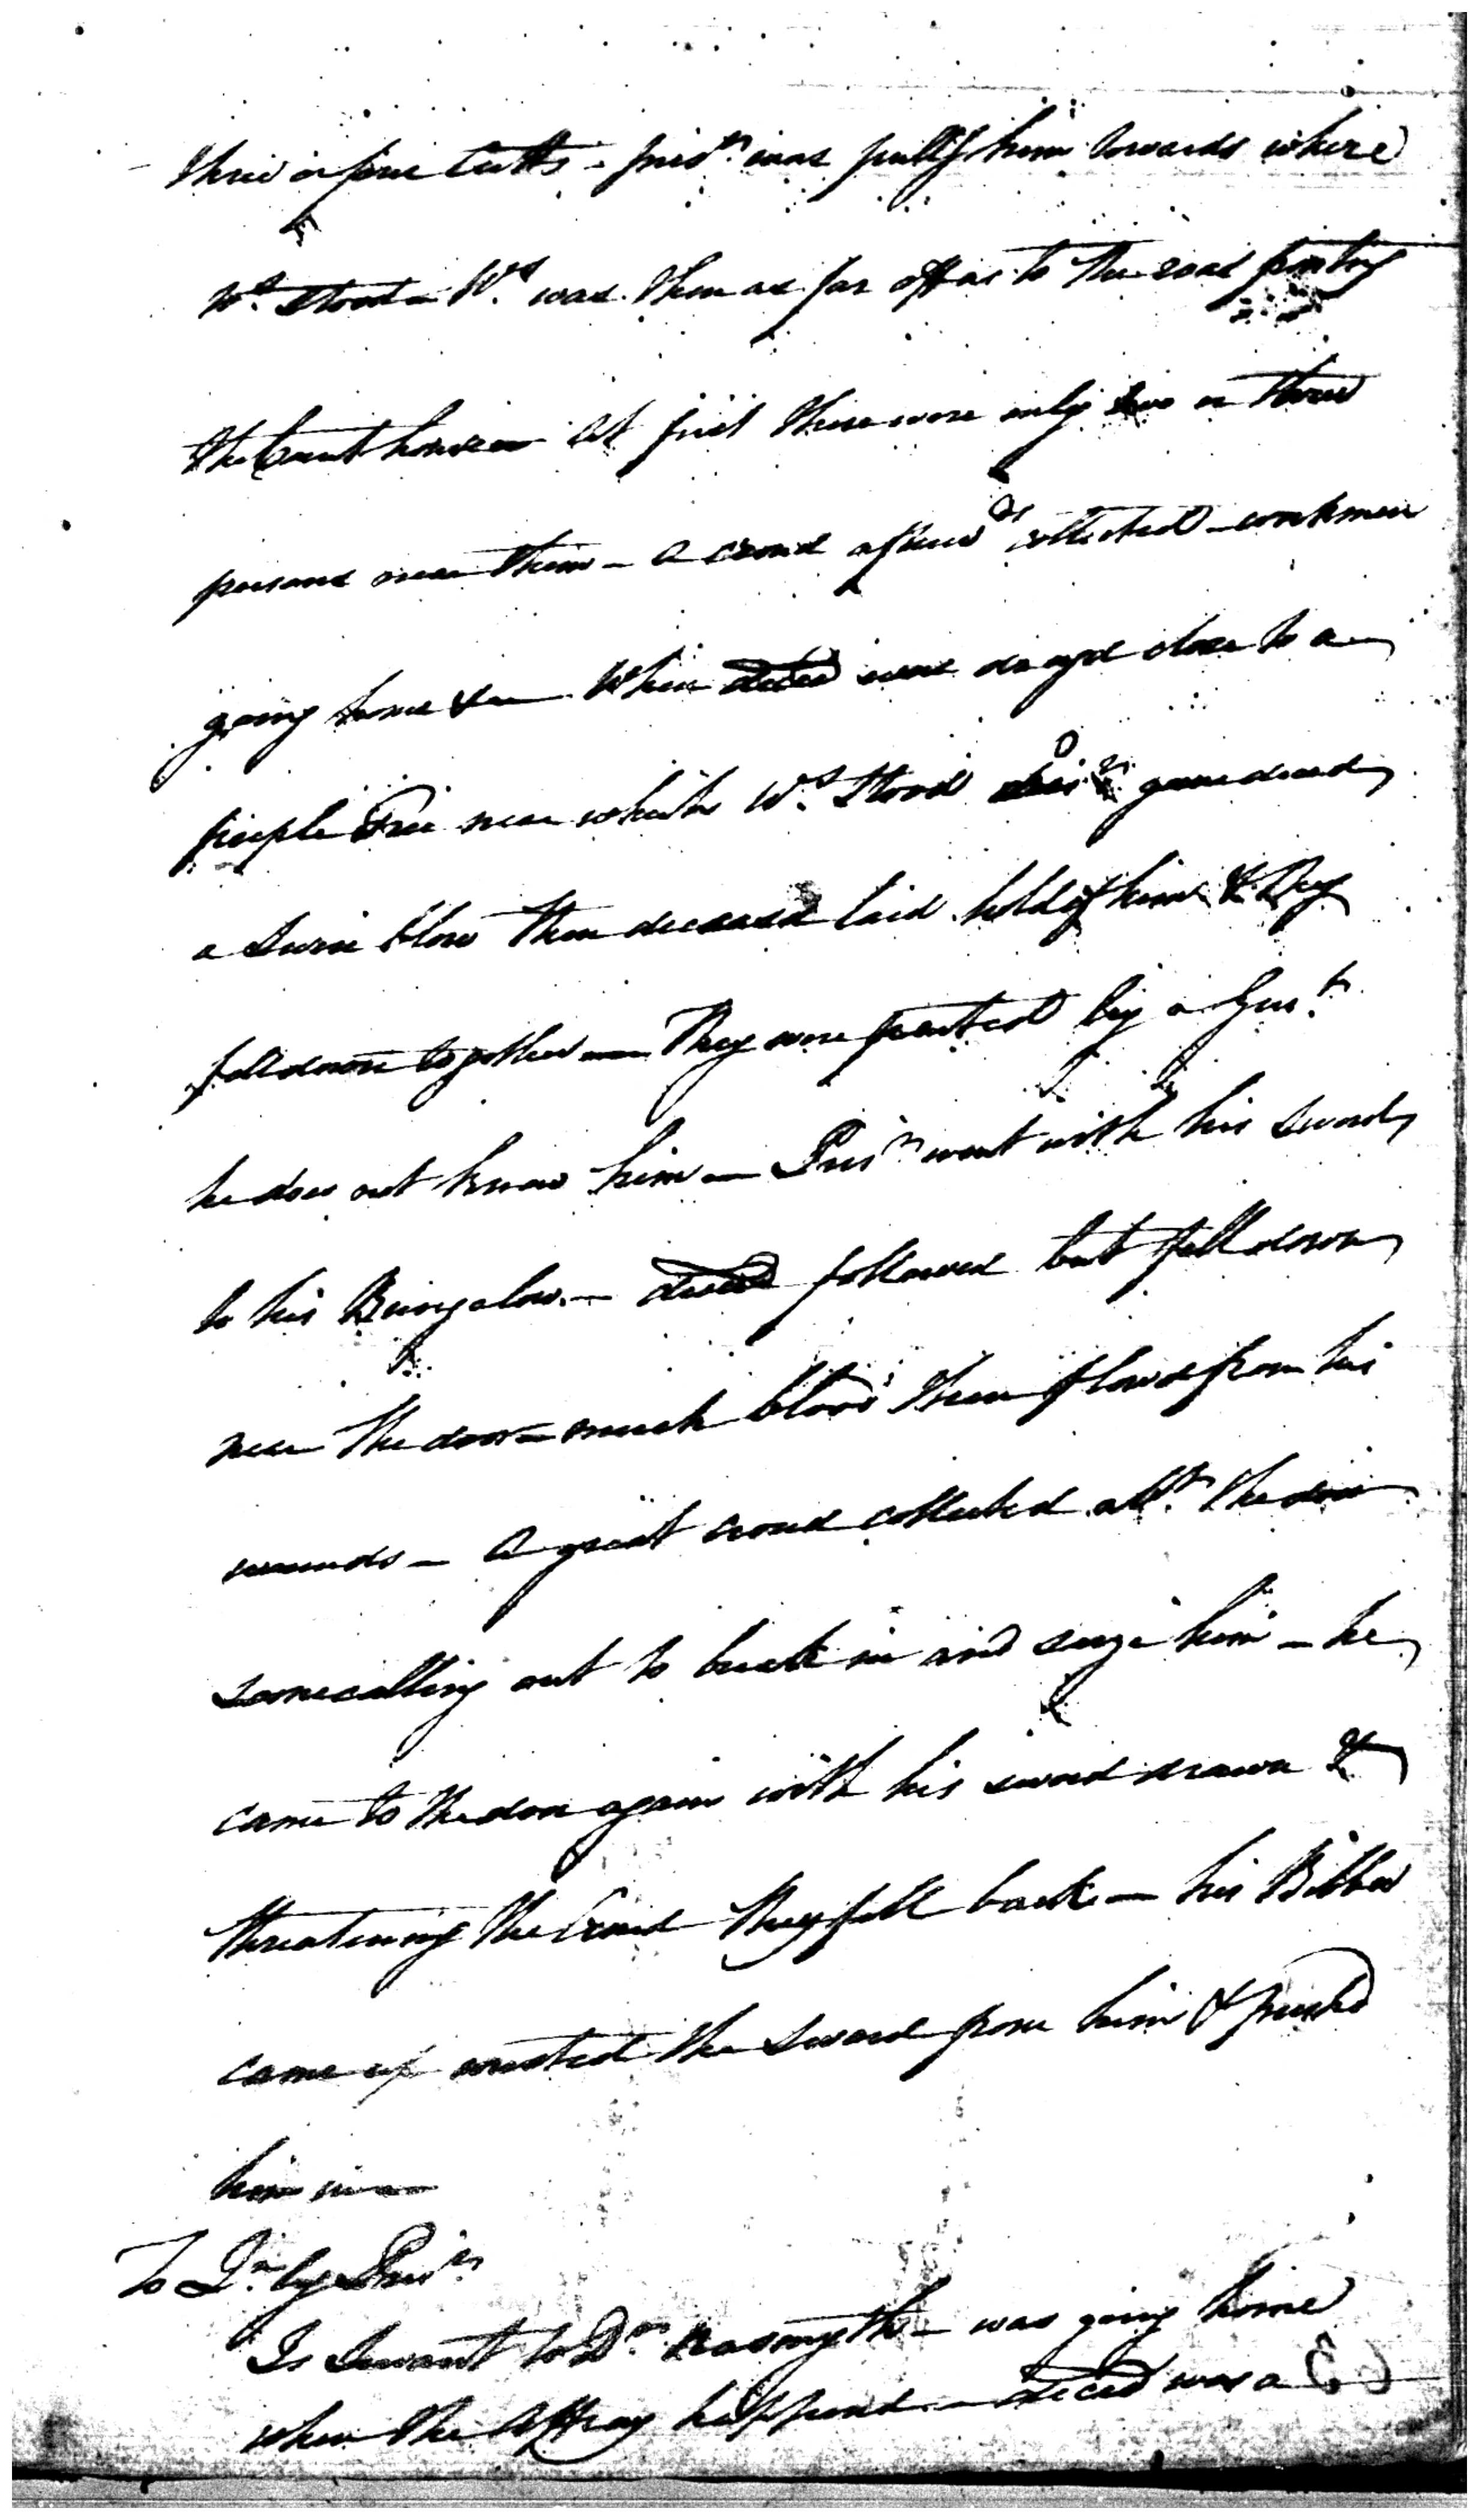 three or four Cutts - Pris.r was pull.g him towards where
W.s stood - W.s was then as far off as to the road fronting
the Court house - At first there were only two or three
persons near them - a croud afterw.ds collected - workmen
going home &c - When deced was draged close to a
peeple Tree near which W.s stood Pris.r gave deced
a severe blow then deceased laid hold of him & They
fell down together - They were parted by a Gen.t
he does not know him - Pris.r went with his sword
to his Bungalow - deced followed but fell down
near the door - much blood then flowed from his
wounds - A great croud collected ab.t the door
some calling out to break in and seize him - he
came to the door again with his sword drawn &
threatening the Croud They fell back - his Bibbee
came up wrested the sword from him & push'd
him in -
To Q.n by Pris.r
Is Servant to D.r Nasmyth - was going home
when the Affray happened - deced was a
63